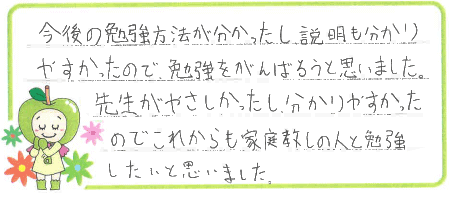 今後の勉強方法が分かったし、説明も分かり
やすかったので、勉強をがんばろうと思いました。
先生がやさしかったし、分かりやすかった
のでこれからも家庭教しの人と勉強
したいと思いました。